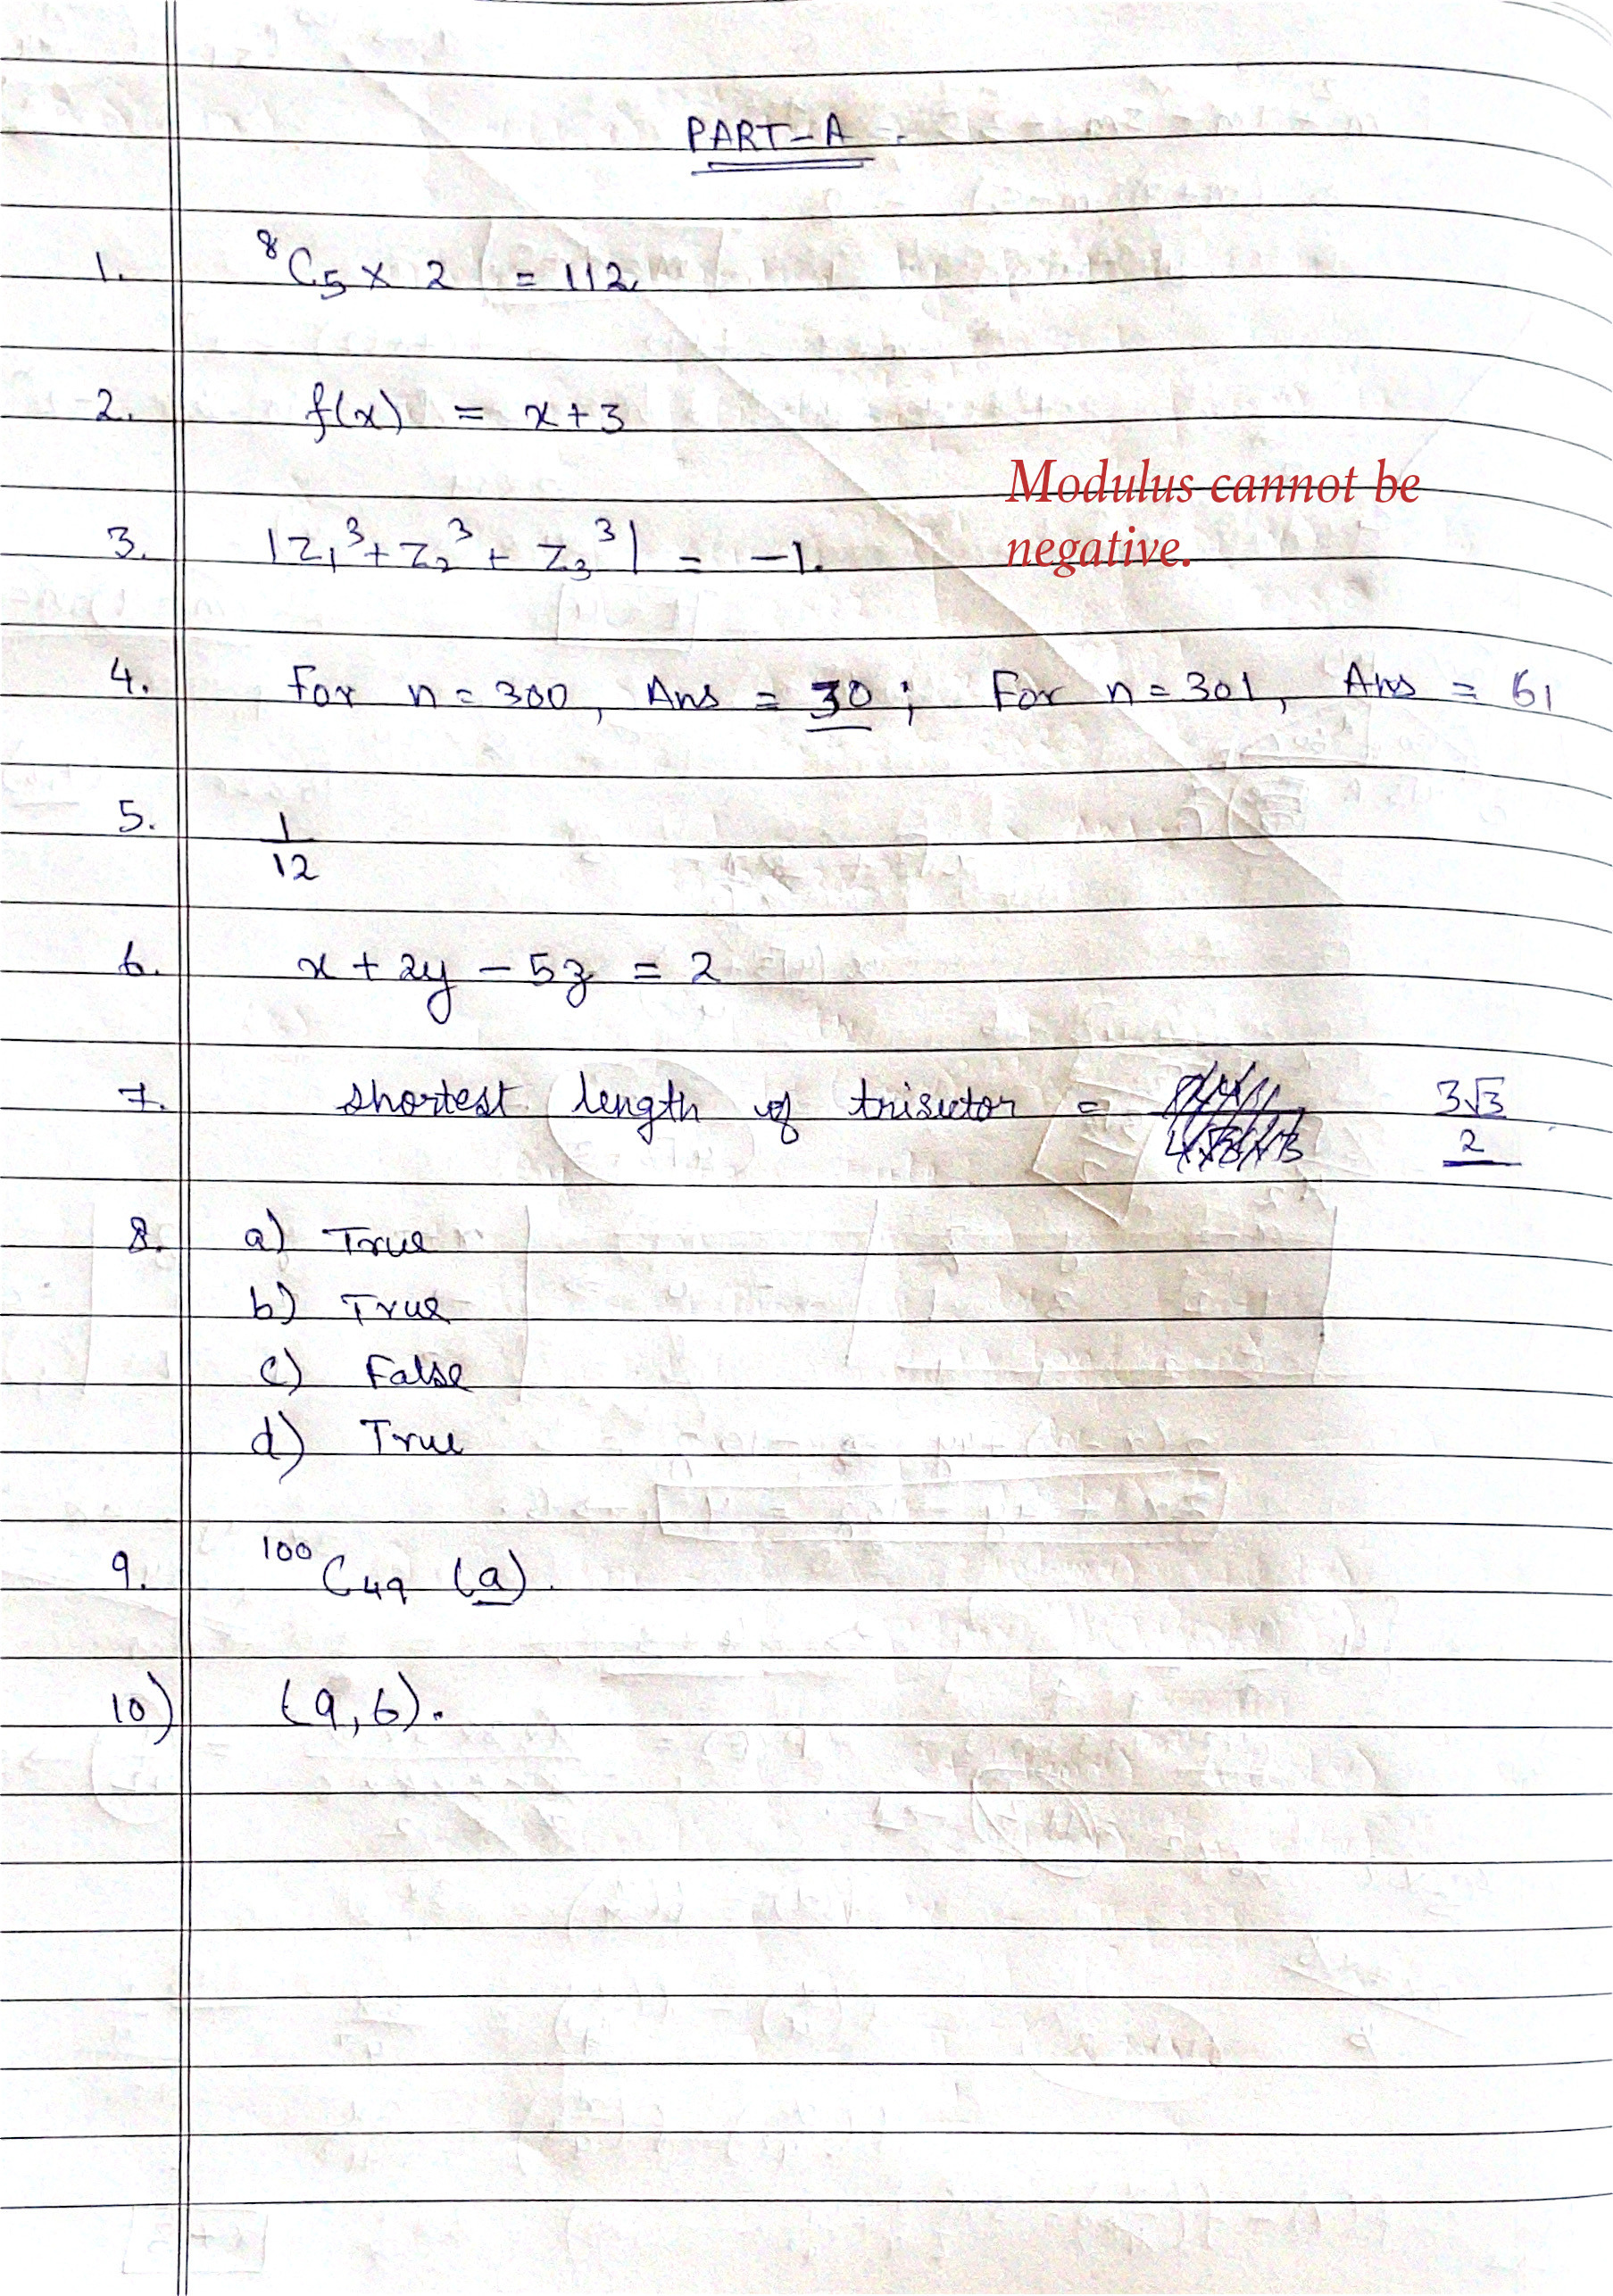 PART-A
1. ⁸C₅ × 2 = 112
2. f(x) = x+3
Modulus cannot be
negative.
3. |z₁³ + z₂³ + z₃³| = -1.
4. For n = 300, Ans = 30 ; For n = 301, Ans = 61
5. 1/12
6. x + 2y - 5z = 2
7. shortest length of trisector = 3√3/2
8. a) True
b) True
c) False
d) True
9. ¹⁰⁰C₄₉ (a).
10) (9,6).